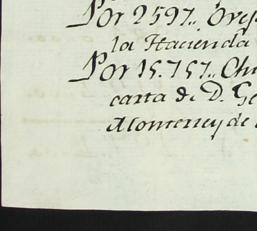 Por 2597,, Ove
la Hacienda
Por 15.757,, Chi
carta de D. Ge
Monterrey de